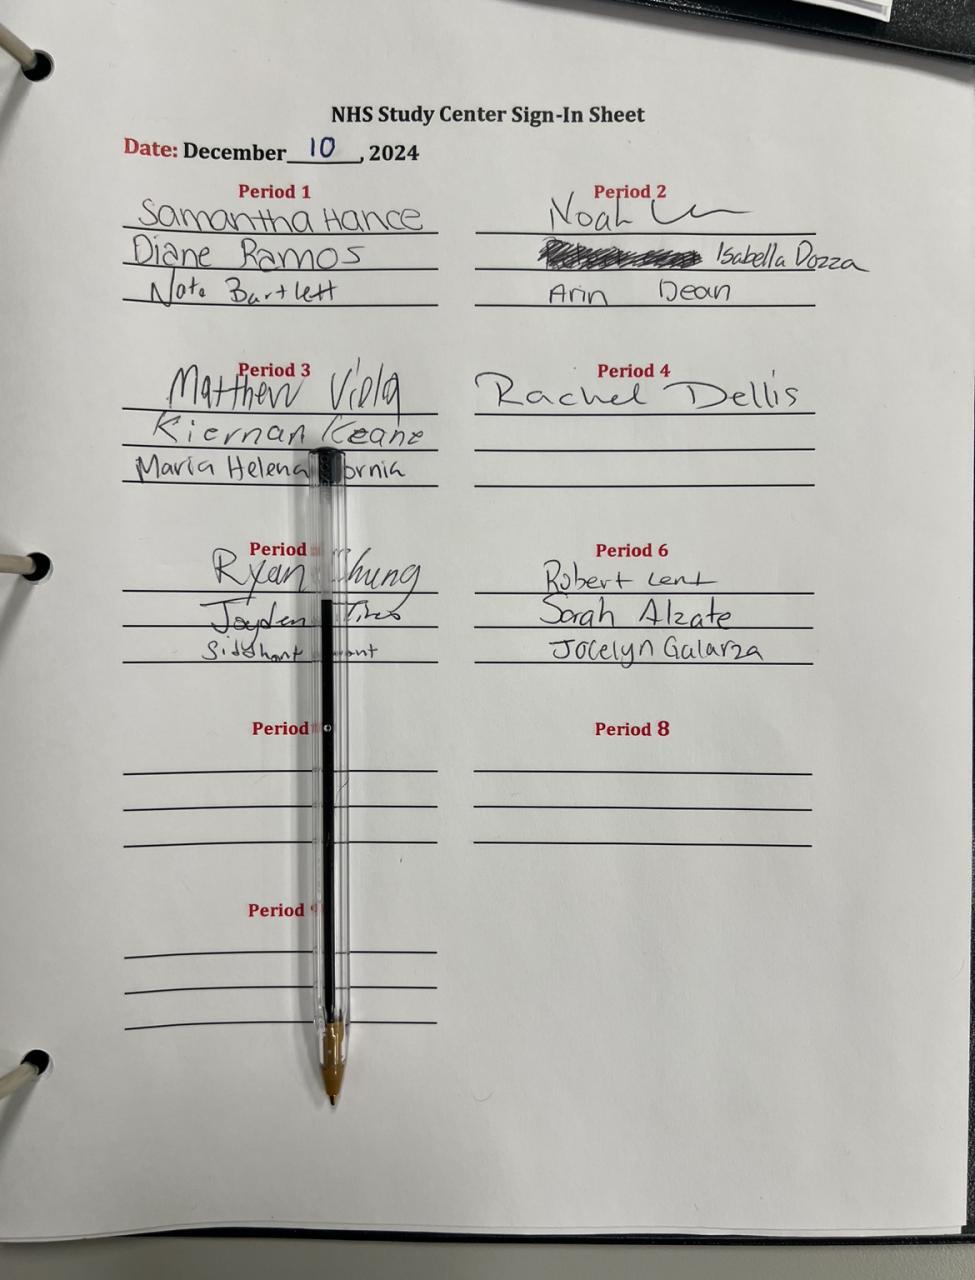 NHS Study Center Sign-In Sheet
Date: December 10, 2024
Period 1
Samantha Hance
Diane Ramos
Nate Bartlett
Period 2
Noah
Isabella Dozza
Arin Dean
Period 3
Matthew Viola
Kiernan Keane
Maria Helena
Period 4
Rachel Dellis
Period
Ryan
Jayden
Siddhant
Period 6
Robert Lent
Sarah Alzate
Jocelyn Galarza
Period
Period 8
Period